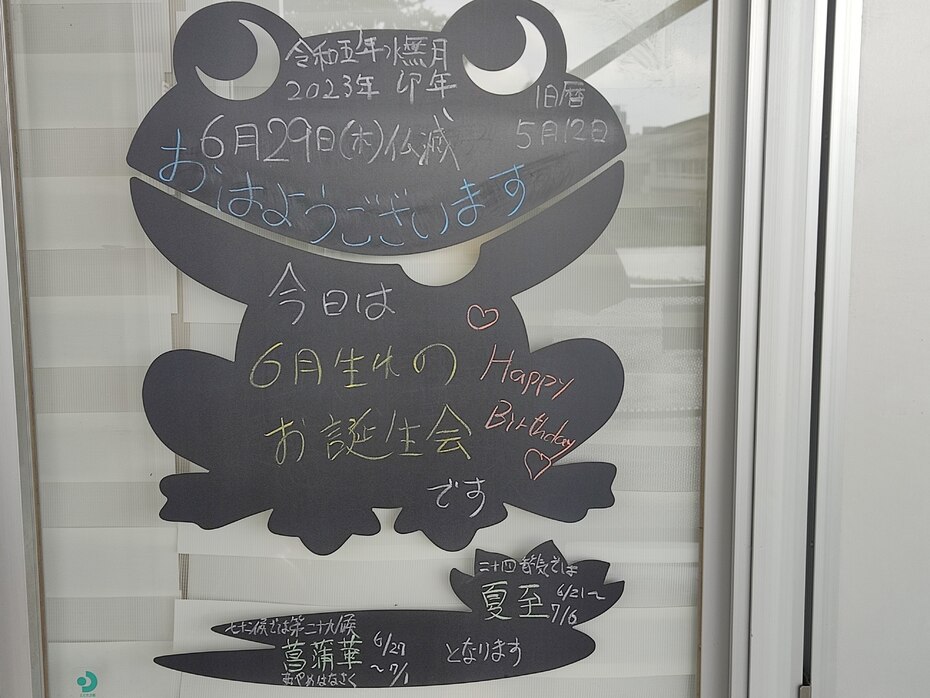 令和五年水無月
2023年 卯年
旧暦
5月12日
6月29日(木)仏滅
おはようございます
今日は
6月生れの
お誕生会
です
♡
Happy
Birthday
♡
二十四節気では
夏至 6/21〜
7/6
七十二候では第二十九候
菖蒲華 6/27
〜7/1
あやめはなさく
となります